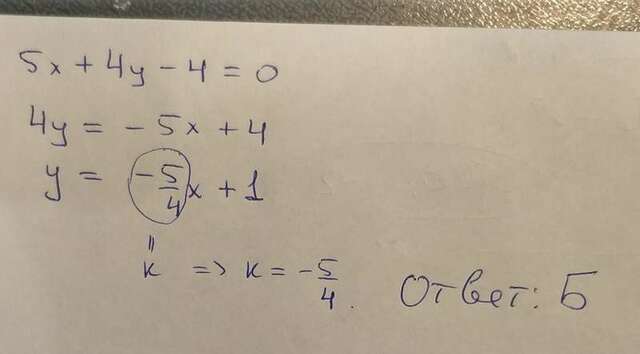 5x + 4y - 4 = 0
4y = - 5x + 4
y = -5/4 x + 1
||
k => k = -5/4.
Ответ: Б